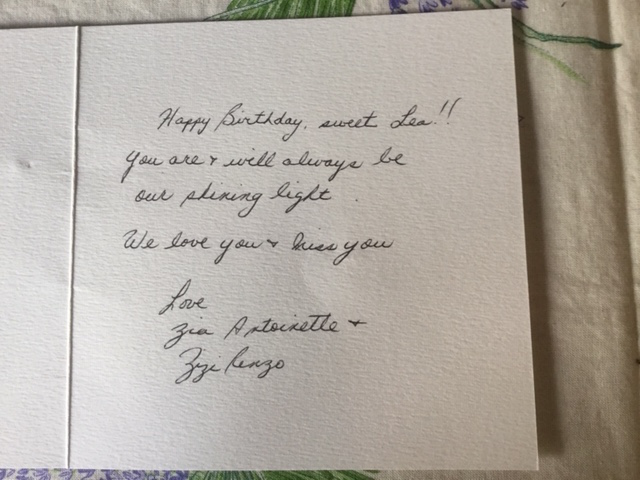 Happy Birthday, sweet Lea!!
You are + will always be
our shining light.
We love you + miss you
Love
Zia Antoinette +
Zizi Renzo